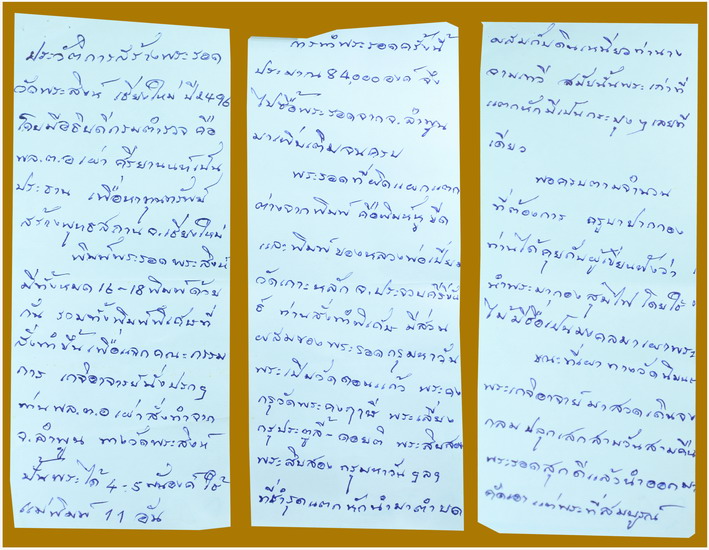 ประวัติการสร้างพระรอด
วัดพระสิงห์ เชียงใหม่ ปี2496
โดยมีอธิบดีกรมตำรวจ คือ
พล.ต.อ เผ่า ศรียานนท์เป็น
ประธาน เพื่อหาทุนทรัพย์
สร้างพุทธสถาน จ.เชียงใหม่
พิมพ์พระรอด พระสิงห์
มีทั้งหมด 16-18 พิมพ์ด้วย
กัน รวมทั้งพิมพ์พิเศษที่
สั่งทำขึ้น เพื่อแจกคณะกรรม
การ เกจิอาจารย์นั่งปรกฯ
ท่านพล.ต.อ เผ่าสั่งทำจาก
จ.ลำพูน ทางวัดพระสิงห์
ปั้นพระได้ 4-5 พันองค์ ใช้
แม่พิมพ์ 11 อัน
การทำพระรอดครั้งนี้
ประมาณ 84,000 องค์ จึง
ไปซื้อพระรอดจากจ.ลำพูน
มาเพิ่มเติมจนครบ
พระรอดที่ผิดแผกแตก
ต่างจากพิมพ์ คือพิมพ์หูขีด
และพิมพ์ของหลวงพ่อเปี่ยม
วัดเกาะหลัก จ.ประจวบคีรีขัน
ธ์ ท่านสั่งทำพิเศษ มีส่วน
ผสมของพระรอดกรุมหาวัน
พระเปิมวัดดอนแก้ว พระคง
กรุวัดพระคงฤาษี พระเลี่ยง
กรุประตูลี้-ดอยติ พระสิบสอง
พระสิบสอง กรุมหาวัน ฯลฯ
ที่ชำรุดแตกหักนำมาตำบด
ผสมกับดินเหนียวท่านาง
จามเทวี สมัยนั้นพระเก่าที่
แตกหักมีเป็นกระบุงๆเลยที
เดียว
พอครบตามจำนวน
ที่ต้องการ ครูบาปากกอง
ท่านได้คุยกับผู้เขียนฟังว่า
นำพระมากองสุมไฟ โดยใช้
ไม้มีชื่อเป็นมงคลมาเผาพระ
ขณะที่เผาทางวัดนิมนต
พระเกจิอาจารย์มาสวดเดินจง
กลม ปลุกเสกสามวันสามคืน
พระรอดสุกดีแล้วนำออกมา
คัดเอา แต่พระที่สมบูรณ์